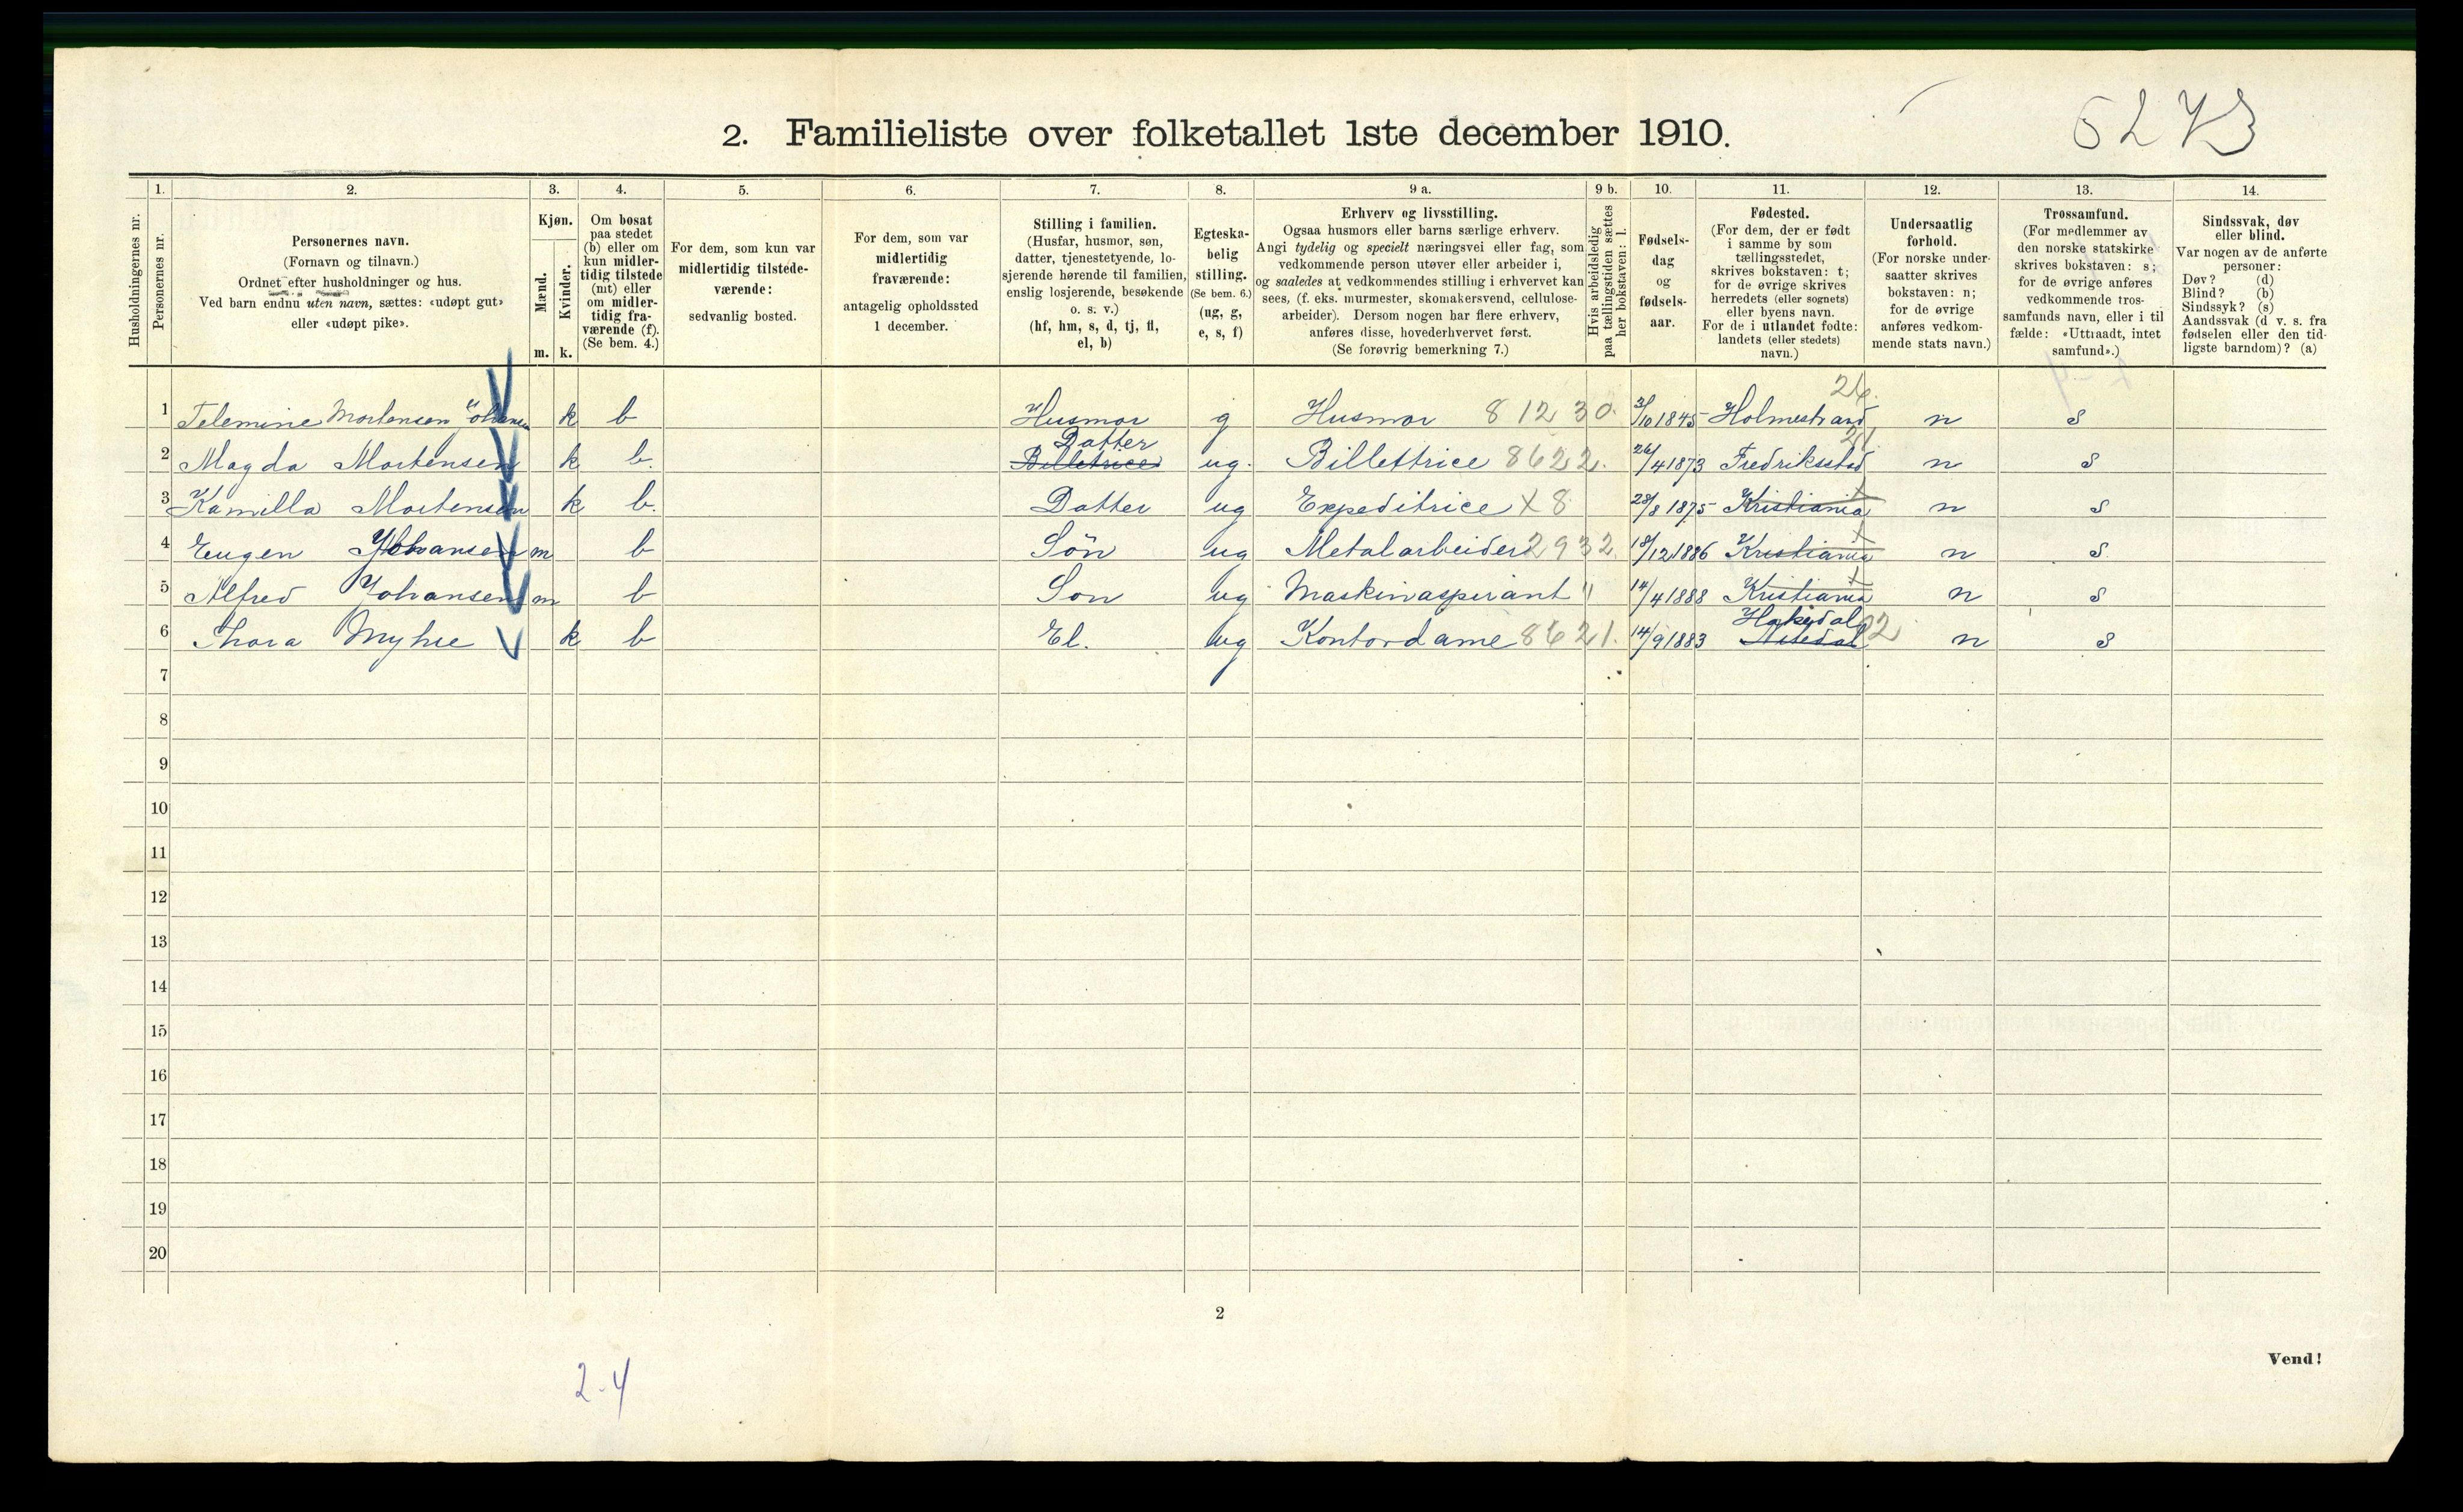 5273
2. Familieliste over folketallet 1ste december 1910.
1. 2. 3. 4. 5. 6. 7. 8. 9 a. 9 b. 10. 11. 12. 13. 14.
Husholdningernes nr.
Personernes nr.
Personernes navn.
(Fornavn og tilnavn.)
Ordnet efter husholdninger og hus.
Ved barn endnu uten navn, sættes: «udøpt gut»
eller «udøpt pike».
Kjøn.
Mænd.
Kvinder.
m. k.
Om bosat
paa stedet
(b) eller om
kun midler-
tidig tilstede
(mt) eller
om midler-
tidig fra-
værende (f).
(Se bem. 4.)
For dem, som kun var
midlertidig tilstede-
værende:
sedvanlig bosted.
For dem, som var
midlertidig
fraværende:
antagelig opholdssted
1 december.
Stilling i familien.
(Husfar, husmor, søn,
datter, tjenestetyende, lo-
sjerende hørende til familien,
enslig losjerende, besøkende
o. s. v.)
(hf, hm, s, d, tj, fl,
el, b)
Egteska-
belig
stilling.
(Se bem. 6.)
(ug, g,
e, s, f)
Erhverv og livsstilling.
Ogsaa husmors eller barns særlige erhverv.
Angi tydelig og specielt næringsvei eller fag, som
vedkommende person utøver eller arbeider i,
og saaledes at vedkommendes stilling i erhvervet kan
sees, (f. eks. murmester, skomakersvend, cellulose-
arbeider). Dersom nogen har flere erhverv,
anføres disse, hovederhvervet først.
(Se forøvrig bemerkning 7.)
Hvis arbeidsledig
paa tællingstiden sættes
her bokstaven: l.
Fødsels-
dag
og
fødsels-
aar.
Fødested.
(For dem, der er født
i samme by som
tællingsstedet,
skrives bokstaven: t;
for de øvrige skrives
herredets (eller sognets)
eller byens navn.
For de i utlandet fødte:
landets (eller stedets)
navn.)
Undersaatlig
forhold.
(For norske under-
saatter skrives
bokstaven: n;
for de øvrige
anføres vedkom-
mende stats navn.)
Trossamfund.
(For medlemmer av
den norske statskirke
skrives bokstaven: s;
for de øvrige anføres
vedkommende tros-
samfunds navn, eller i til
fælde: «Uttraadt, intet
samfund».)
Sindssvak, døv
eller blind.
Var nogen av de anførte
personer:
Døv? (d)
Blind? (b)
Sindssyk? (s)
Aandssvak (d v. s. fra
fødselen eller den tid-
ligste barndom)? (a)
26.
1 Telemine Mortensen Johansen k b Husmor g Husmor 8 12 30. 3/10 1845 Holmestrand n s
Datter
2 Magda Mortensen k b. Billetrice ug. Billettrice 8622. 26/4 1873 Fredriksstad n s
3 Kamilla Mortensen k b. Datter ug Expeditrice x 8 28/8 1875 Kristiania n s
4 Eugen Johansen m b Sön ug Metalarbeider 2932. 18/12 1886 Kristiania n s.
5 Alfred Johansen m b Son ug Maskinaspirant " 14/4 1888 Kristiania n s
Hakedal
6 Thora Myhre k b El. ug Kontordame 8621. 14/9 1883 02 n s
7
8
9
10
11
12
13
14
15
16
17
18
19
20
2
Vend!
2-4